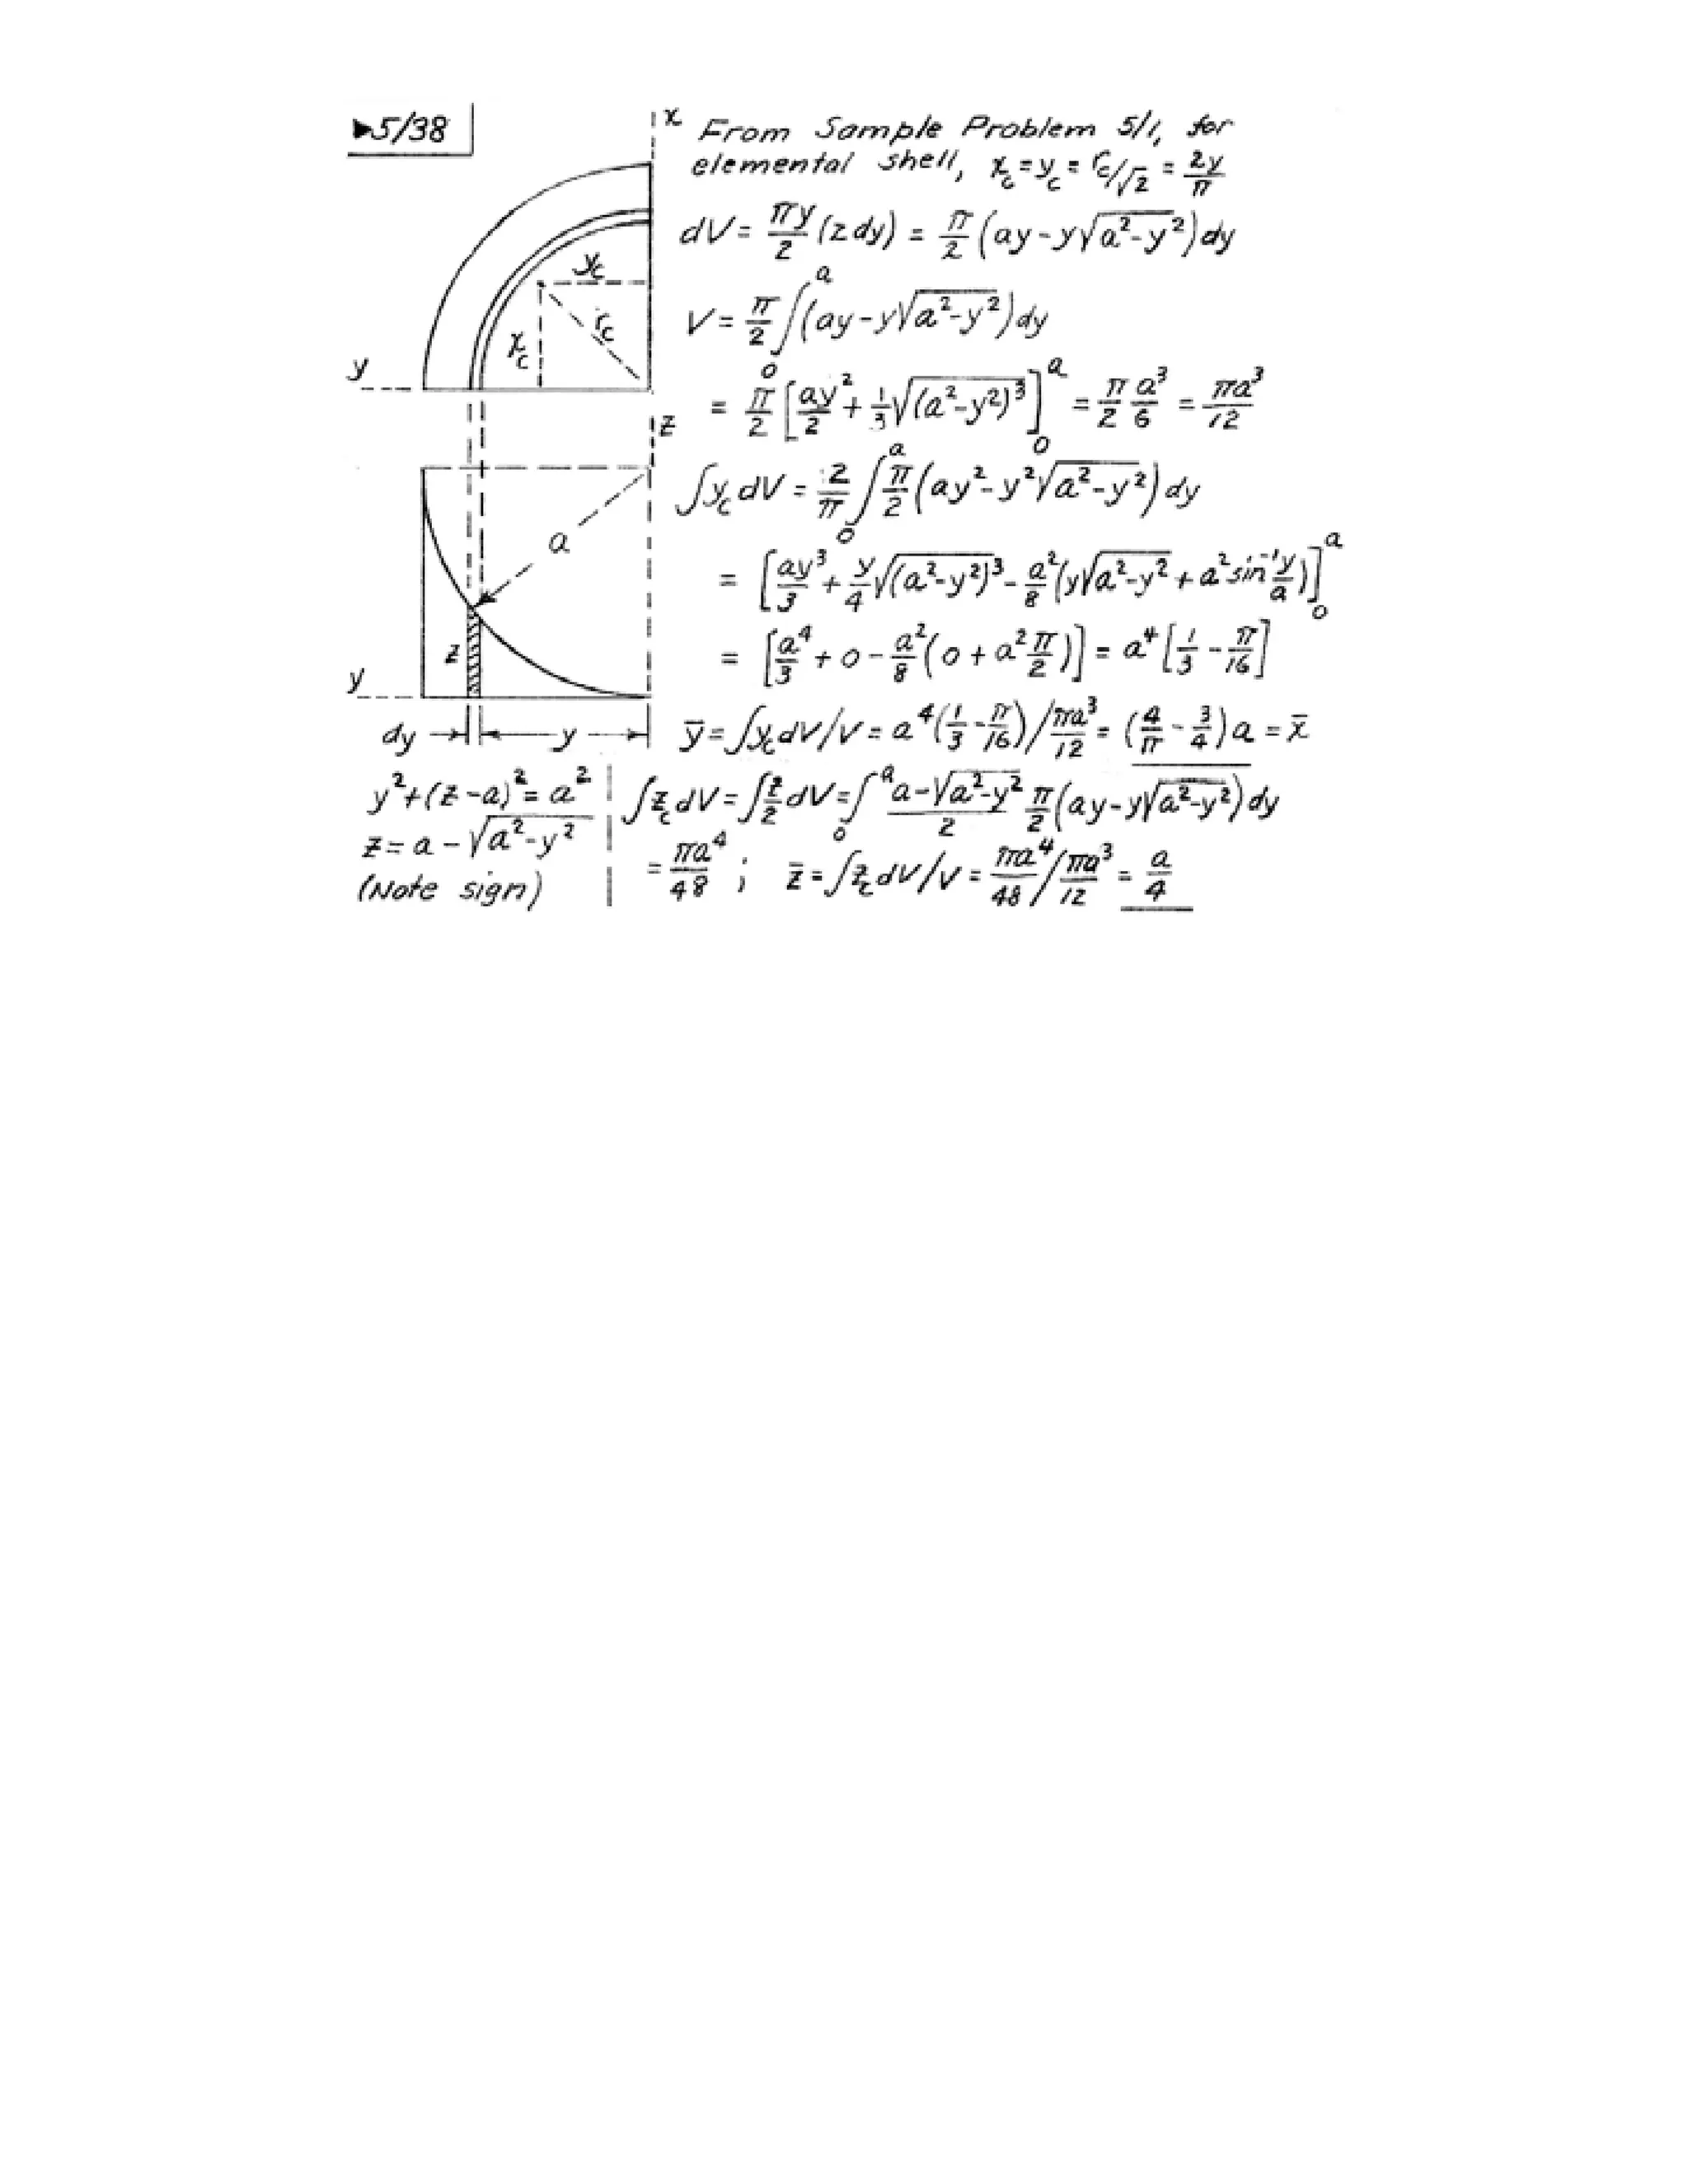 ▶5/38
x
From Sample Problem 5/1, for
elemental shell, x_c = y_c = r_c/√2 = 2y/π
dV = πy/2 (z dy) = π/2 (ay - y√(a²-y²)) dy
y_c
x_c
r_c
y
V = π/2 ∫₀ᵃ (ay - y√(a²-y²)) dy
= π/2 [ay²/2 + 1/3 √((a²-y²)³)]₀ᵃ = π/2 a³/6 = πa³/12
z
∫y_c dV = 2/π ∫₀ᵃ π/2 (ay² - y²√(a²-y²)) dy
a
= [ay³/3 + y/4 √((a²-y²)³) - a²/8 (y√(a²-y²) + a² sin⁻¹ y/a)]₀ᵃ
z
= [a⁴/3 + 0 - a²/8 (0 + a² π/2)] = a⁴ [1/3 - π/16]
y
dy
y
ȳ = ∫y_c dV/V = a⁴(1/3 - π/16) / πa³/12 = (4/π - 3/4) a = x̄
y² + (z-a)² = a²
z = a - √(a²-y²)
(Note sign)
∫z_c dV = ∫z/2 dV = ∫₀ᵃ (a-√(a²-y²))/2 π/2 (ay - y√(a²-y²)) dy
= πa⁴/48 ; z̄ = ∫z_c dV/V = πa⁴/48 / πa³/12 = a/4